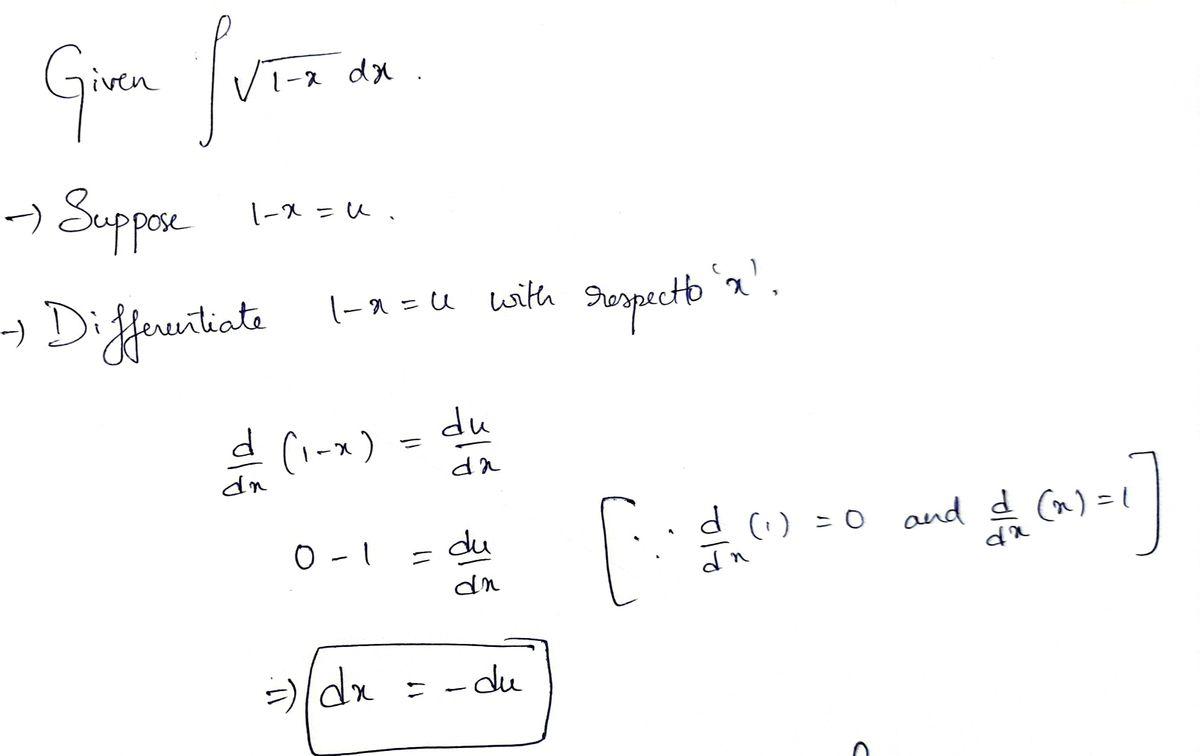 Given ∫√1-x dx .
→ Suppose 1-x = u .
→ Differentiate 1-x = u with respectto 'x'.
d/dx (1-x) = du/dx
0 - 1 = du/dx [∵ d/dx (1) = 0 and d/dx (x) = 1]
⇒ dx = -du